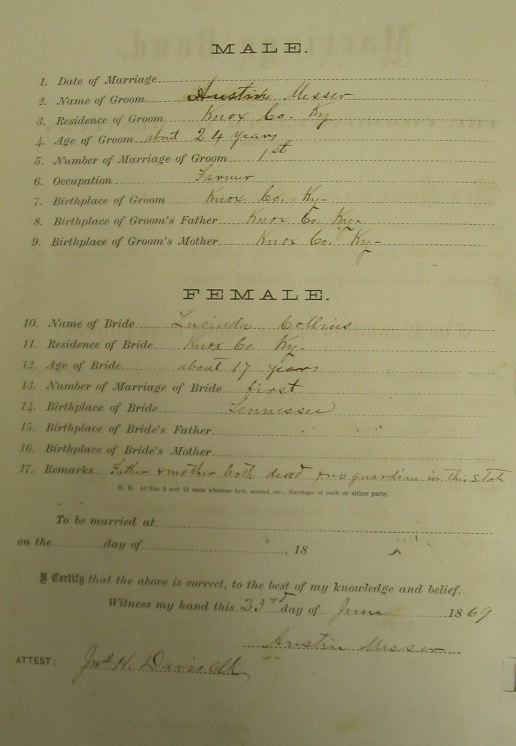 MALE.
1. Date of Marriage
2. Name of Groom Austin Messer
3. Residence of Groom Knox Co. Ky
4. Age of Groom about 24 years
5. Number of Marriage of Groom 1st
6. Occupation Farmer
7. Birthplace of Groom Knox Co. Ky-
8. Birthplace of Groom's Father Knox Co. Ky-
9. Birthplace of Groom's Mother Knox Co. Ky-
FEMALE.
10. Name of Bride Lucinda Collins
11. Residence of Bride Knox Co Ky-
12. Age of Bride about 17 years
13. Number of Marriage of Bride first
14. Birthplace of Bride Tennessee
15. Birthplace of Bride's Father
16. Birthplace of Bride's Mother
17. Remarks Father & mother both dead & no guardian in this State
N. B. At Nos. 5 and 13 state whether first, second, etc., Marriage of each or either party.
To be married at
on the day of , 18
I Certify that the above is correct, to the best of my knowledge and belief.
Witness my hand this 23rd day of June 1869
Austin Messer
ATTEST: H. Davis Clk